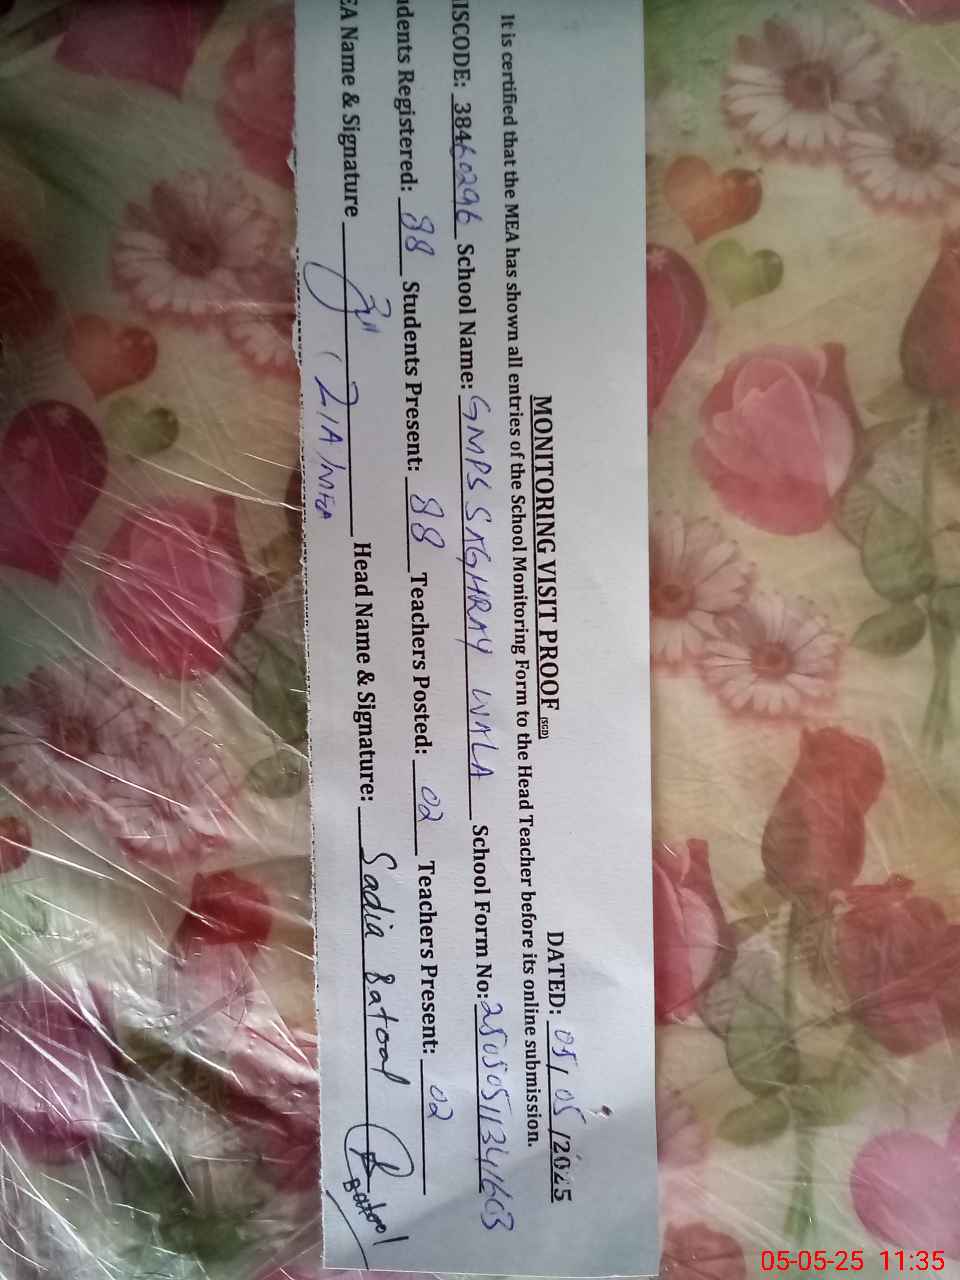 MONITORING VISIT PROOF (SGD)
DATED: 05/05/2025
It is certified that the MEA has shown all entries of the School Monitoring Form to the Head Teacher before its online submission.
ISCODE: 38460296 School Name: GMPS SAGHRAY WALA School Form No: 25050511341603
dents Registered: 88 Students Present: 88 Teachers Posted: 02 Teachers Present: 02
EA Name & Signature (ZIA/MEA Head Name & Signature: Sadia Batool Batool
05-05-25 11:35